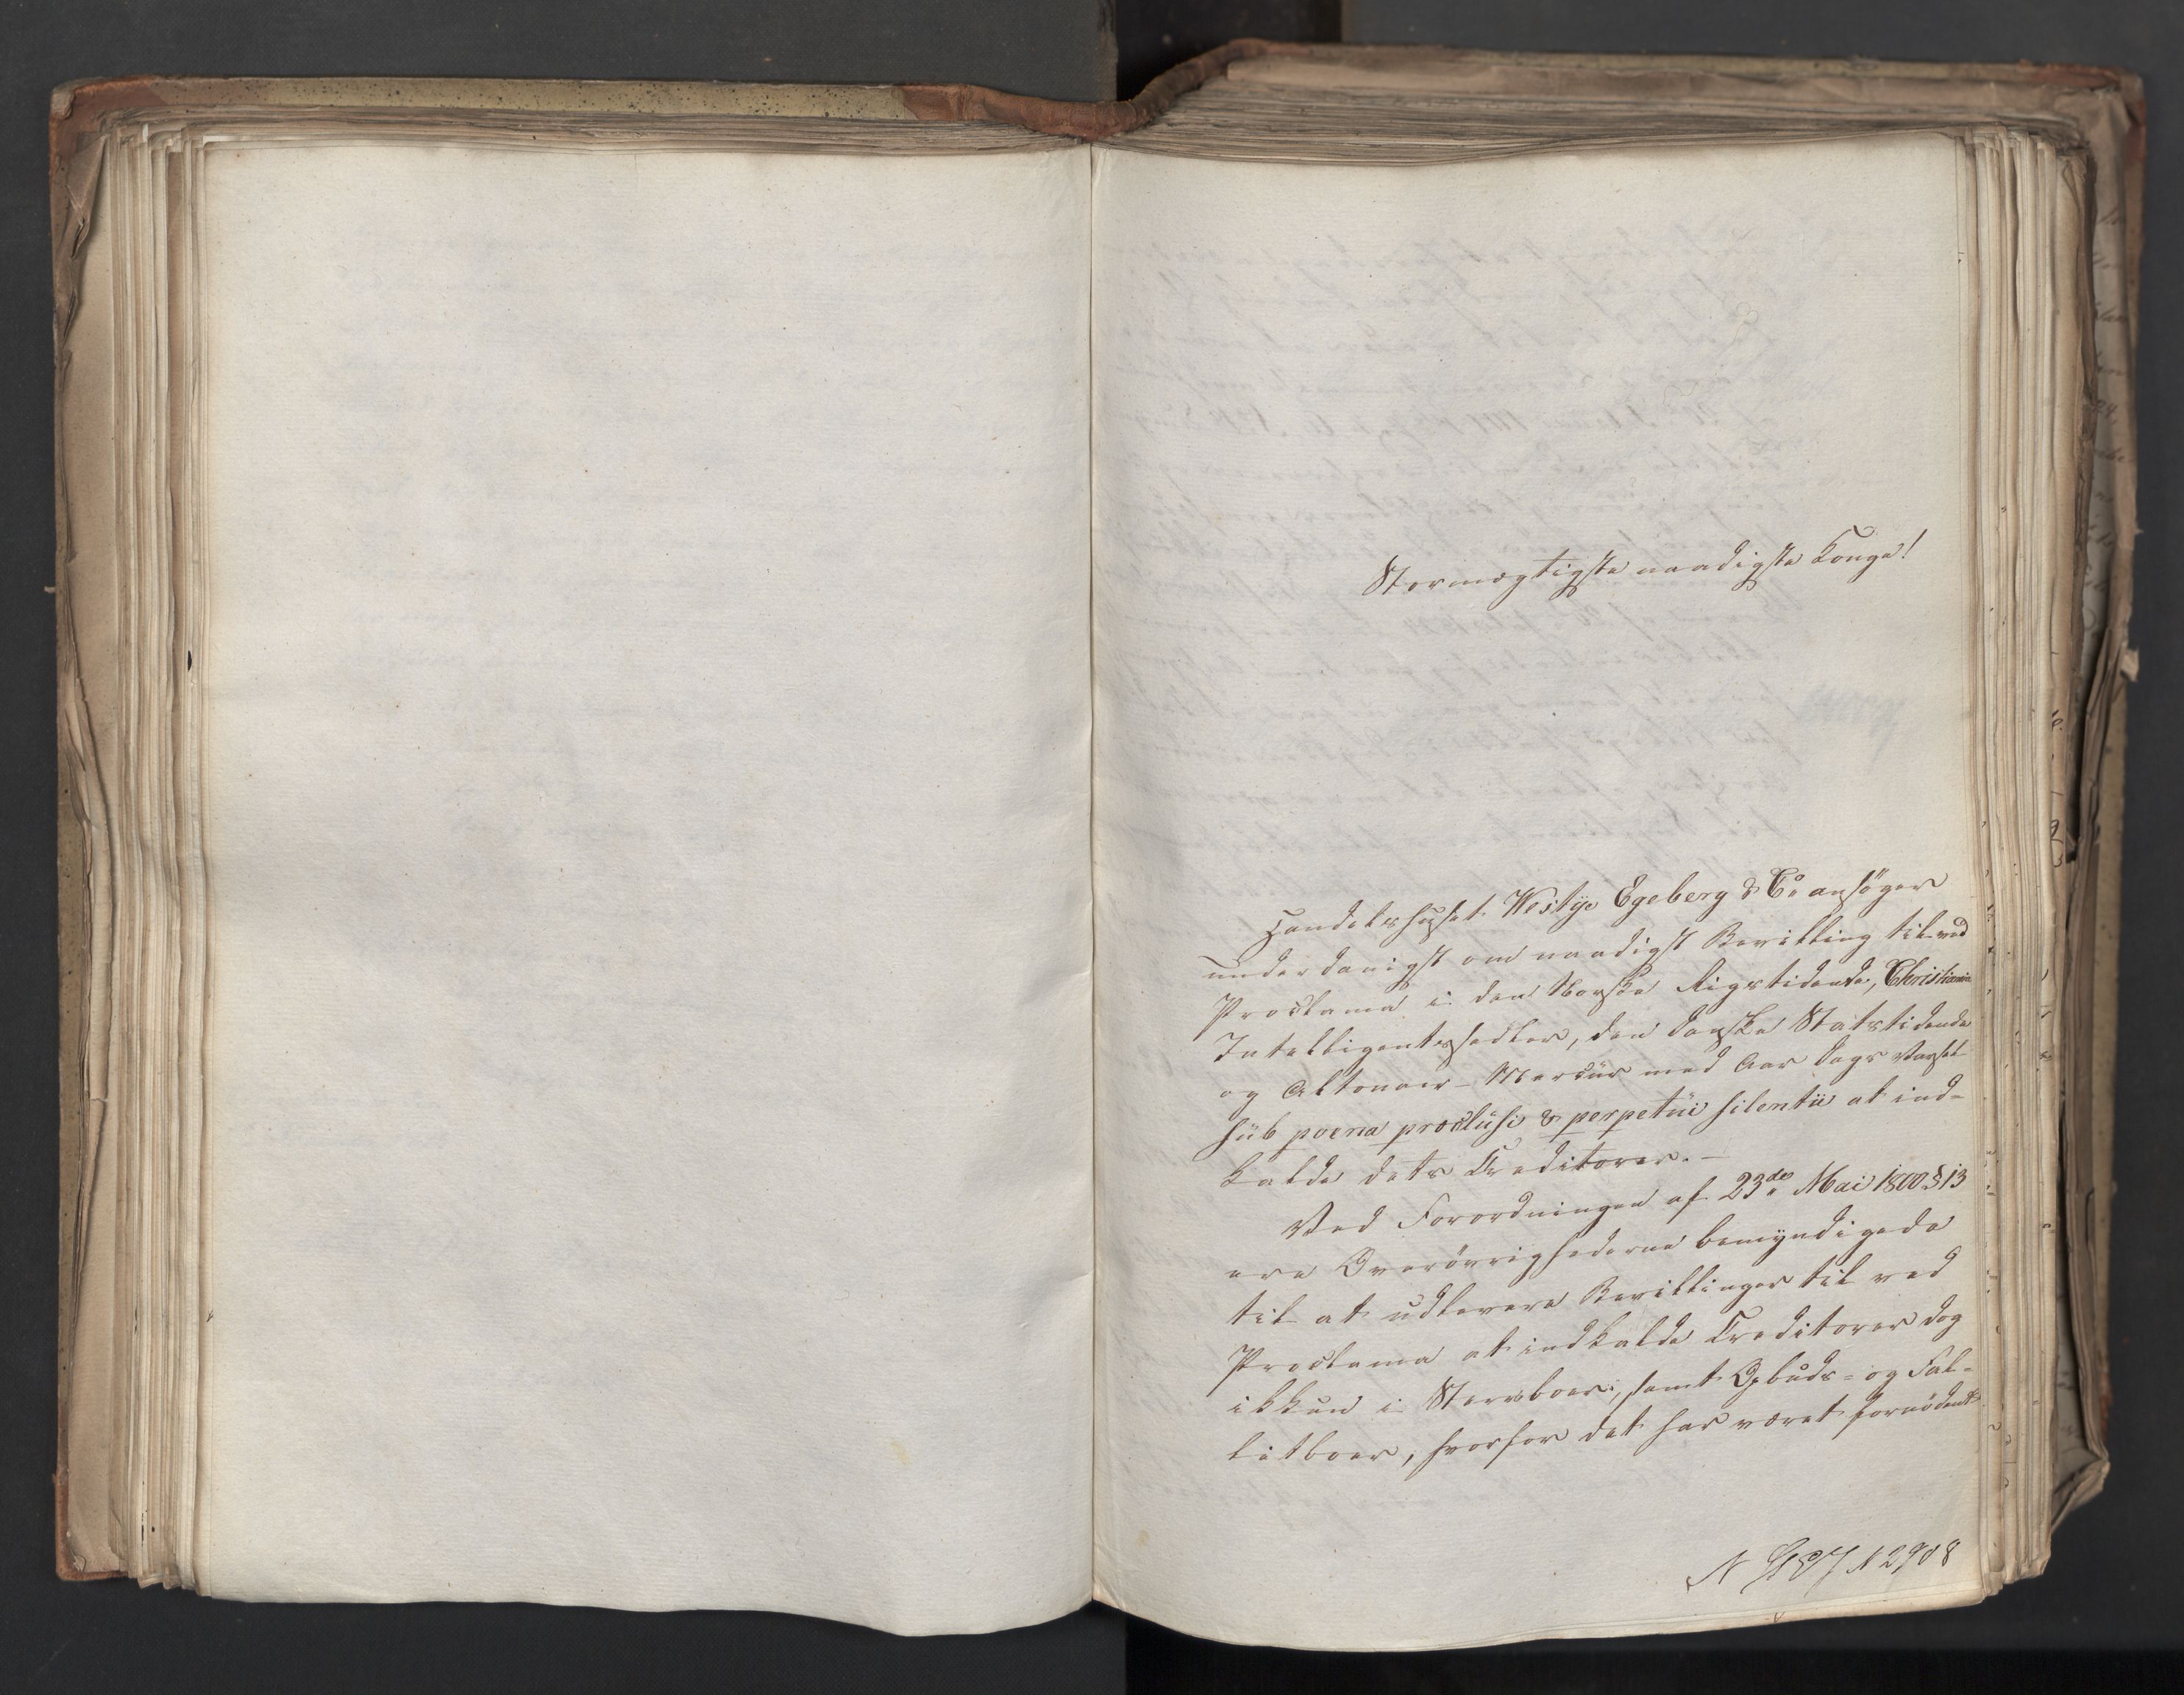 Stormægtigste naadigste Konge!
Handelshuset Westye Egeberg & Co ansöger
underdanigst om naadigst Bevilling til ved
Proclama i den Norske Rigstidende, Christiania
Intelligentssedler, den danske Statstidende
og Altonaer-Mercür med Aar Dags Varsel
süb poena præclüsi & perpetüi silentii at ind-
kalde dets Creditorer.-
Ved Forordningen af 23de Mai 1800 § 13
ere Overövrighederne bemyndigede
til at udlevere Bevillinger til ved
Proclama at indkalde Creditorer dog
ikkun i Stervboer, samt Opbuds- og Fal-
litboer, hvorfor det har været fornödent